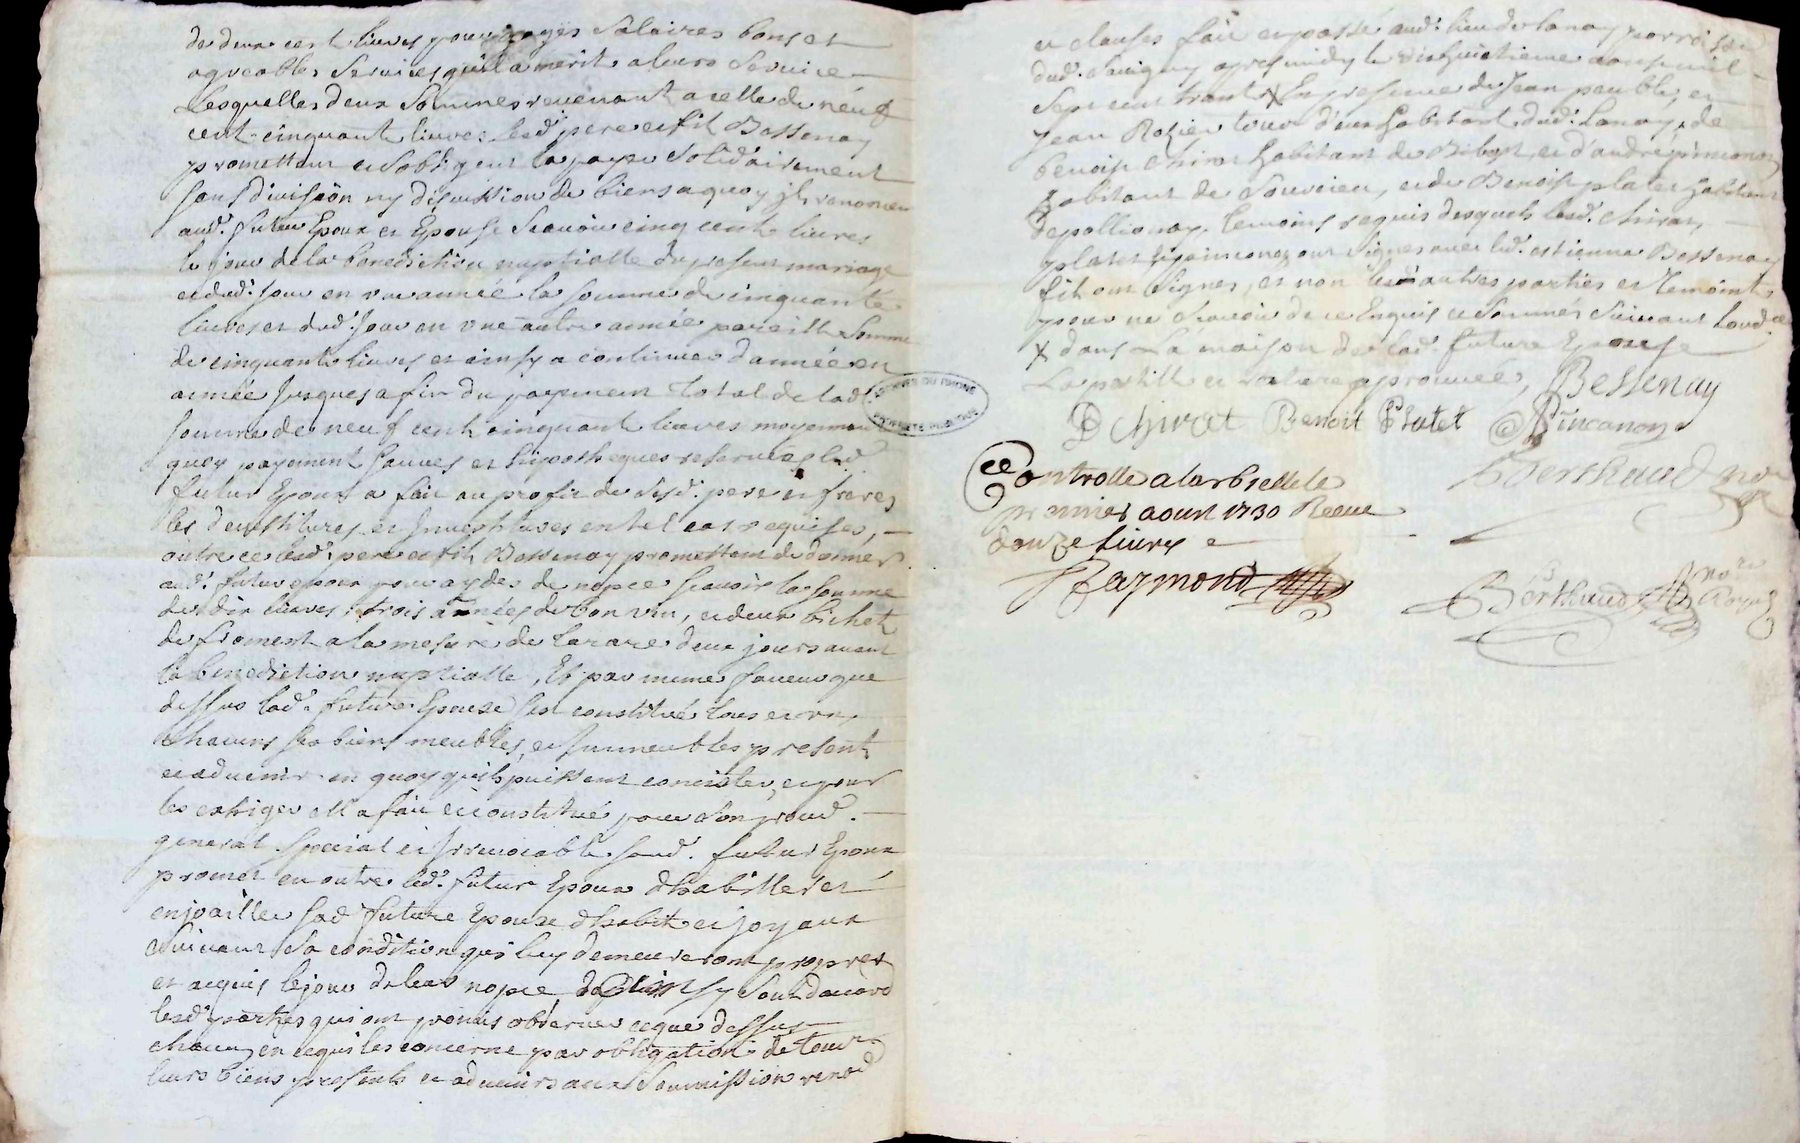 de deux cent livres pour gages salaires bons et
agreables services qu'il a merité a leurs service
Lesquelles deux sommes revenant a celle de neuf
cent cinquant livres lesd. pere et fils Bessenay
promettent et s'obligent la payer solidairement
sans division ny discution de biens a quoy ils renoncent
aud. futur Epoux et Epouse scavoir cinq cent livres
le jour de la benediction nuptialle du present mariage
et dud. jour en une année la somme de cinquante
livres et dud. jour en une autre année pareille somme
de cinquante livres et ainsy a continuer d'année en
année jusques a fin du payement total de lad.
somme de neuf cent cinquant livres moyennant
quoy payement sauves et hipotheques reservées led.
futur Epoux a fait au profit de sesd. pere et freres
les devestitures et Investitures en tel cas requises,
outre ce lesd. pere et fils Bessenay promettent de donner
aud. futur epoux pour aydes de nopce scavoir la somme
de dix livres, trois années de bon vin, et deux bichets
de froment a la mesure de Tarare deux jours avant
la benediction nuptialle, Et par meme faveur que
dessus lad. future Epouse s'est constitué tous et un
chacuns ses biens meubles, et Immeubles present
et advenir en quoy qu'ils puissent concister, et pour
les exhiger elle a fait et constitué pour son procd.
general special et Irrevocable sond. futur Epoux
promet en outre led. futur Epoux d'habiller et
enjoailler sad. future Epouse d'habit et joyaux
suivant sa condition qui luy demeureront propres
et acquis le jour de leurs nopce, ainsy sont d'accord
lesd. parties qui ont promis observer ce que dessus
chacun en ce qui les concerne par obligation de tous
leurs biens presents et advenirs aux soumission renod.
et clauses fait et passé aud. lieu de Lanay parroisse
dud. Savigny apres midy le vinhuitieme jour mil
sept cent trante X En presence de Jean peuble, et
Jean Rozier tous deux habitant dud. Lanay, de
benoist chirat habitant de Bibost, et d'andré pinconon
habitant de Sourcieu, et de Benoist platet habitant
de pollionay temoins requis desquels lesd. chirat,
platet et pinconon ont signés avec led. estienne Bessenay
fils ont signes, et non lesd. autres parties et temoints
pour ne scavoir de ce Enquis et sommes suivant l'ord.ce
X dans La maison de lad. future Epouse
La postille et rature aprouvée, Bessenay
B Chirat Benoit Platet A Pinconon
Berthaud nore
Controlle a larbresle le
premier aoust 1730 Receu
douze livres
Raymond
Berthaud nore Royal
ARCHIVES DU RHONE